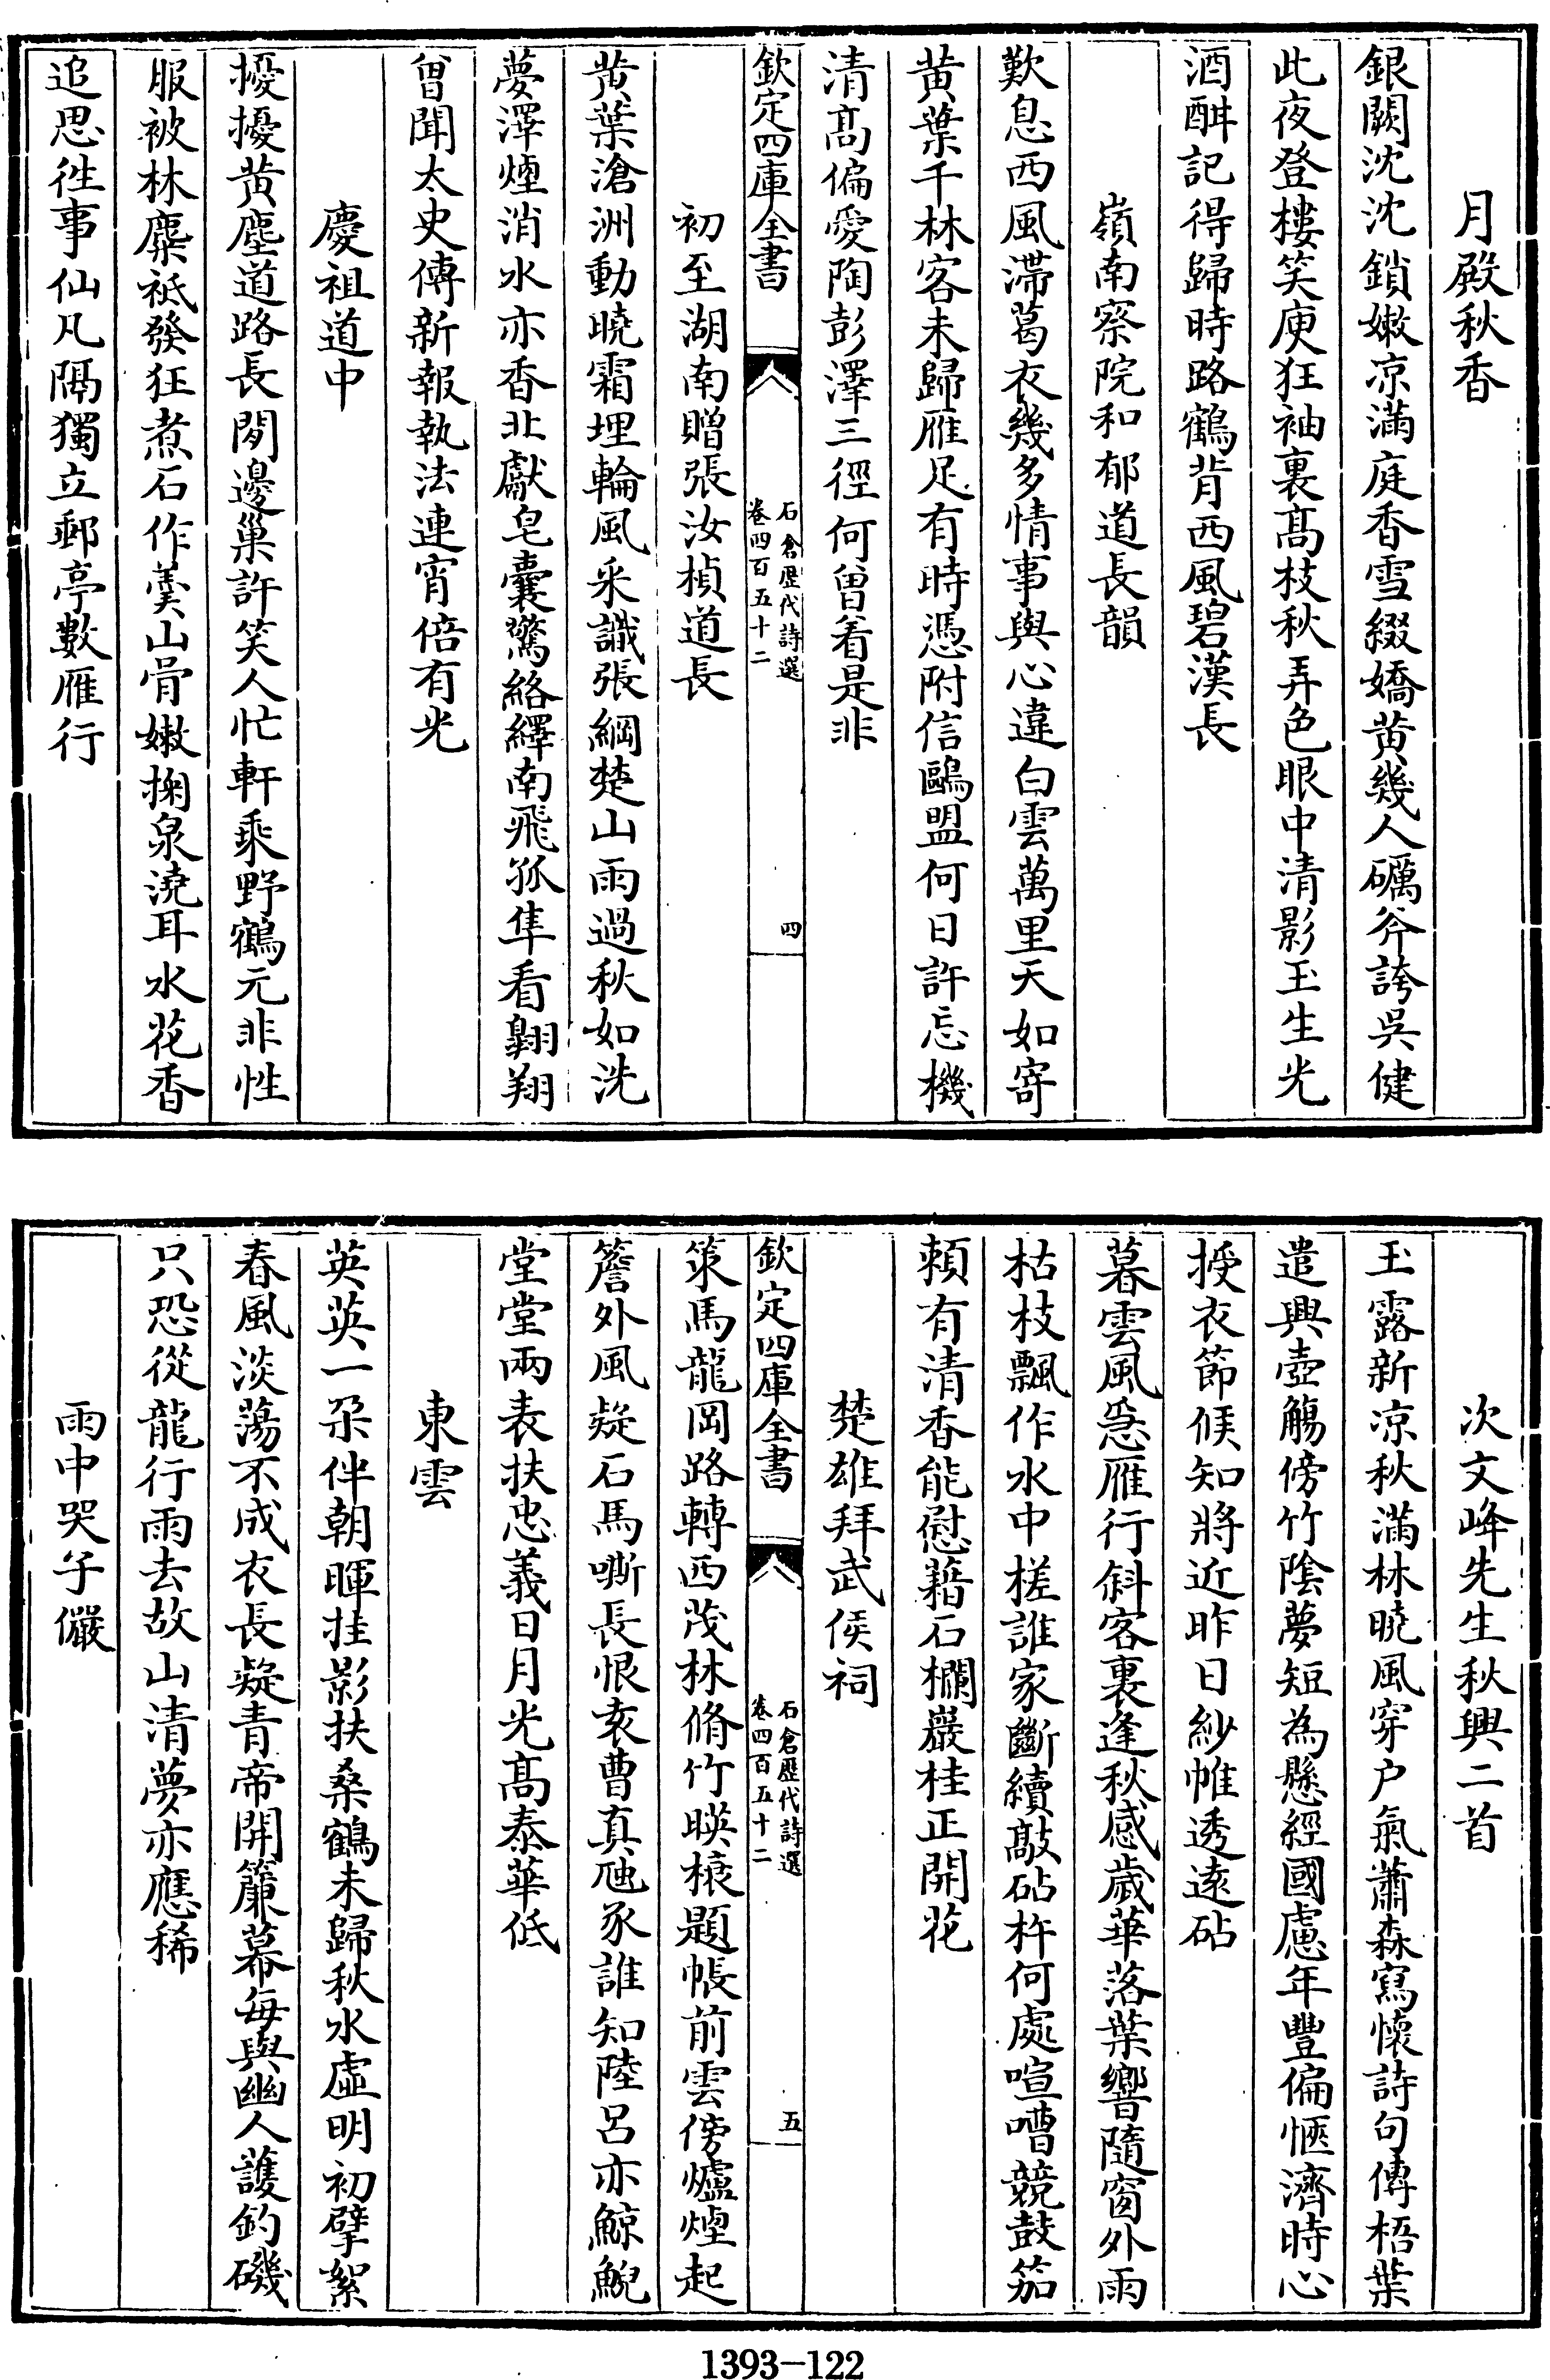 月殿秋香
銀闕沈沈鎖嫩凉滿庭香雪綴嬌黄幾人礪斧誇吳健
此夜登樓笑庾狂袖裏髙枝秋弄色眼中清影玉生光
酒酣記得歸時路鶴背西風碧漢長
嶺南察院和郁道長韻
歎息西風滯葛衣幾多情事與心違白雲萬里天如寄
黄葉千林客未歸雁足有時憑附信鷗盟何日許忘機
清髙偏愛陶彭澤三徑何曾着是非
欽定四庫全書
石倉歷代詩選
卷四百五十二
四
初至湖南贈張汝楨道長
黄葉滄洲動曉霜埋輪風采識張綱楚山雨過秋如洗
夢澤煙消水亦香北獻皂囊驚絡繹南飛孤隼看翺翔
曾聞太史傳新報執法連宵倍有光
慶祖道中
擾擾黄塵道路長閒邊巢許笑人忙軒乘野鶴元非性
服被林麋祗發狂煮石作羮山骨嫩掬泉澆耳水花香
追思徃事仙凡隔獨立郵亭數雁行
次文峰先生秋興二首
玉露新凉秋滿林曉風穿户氣蕭森寫懷詩句傳梧葉
遣興壺觴傍竹陰夢短為懸經國慮年豐偏愜濟時心
授衣節候知將近昨日紗帷透遠砧
暮雲風急雁行斜客裏逢秋感歲華落葉響隨窗外雨
枯枝飄作水中槎誰家斷續敲砧杵何處喧嘈競鼓笳
頼有清香能慰藉石欄巖桂正開花
楚雄拜武侯祠
欽定四庫全書
石倉歷代詩選
卷四百五十二
五
策馬龍岡路轉西茂林脩竹暎榱題帳前雲傍爐煙起
簷外風疑石馬嘶長恨袁曹真虺豕誰知陸呂亦鯨鯢
堂堂兩表扶忠義日月光髙泰華低
東雲
英英一朶伴朝暉挂影扶桑鶴未歸秋水虛明初擘絮
春風淡蕩不成衣長疑青帝開簾幕每與幽人護釣磯
只恐從龍行雨去故山清夢亦應稀
雨中哭子儼
1393-122